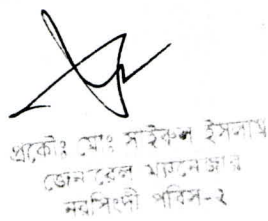 প্রকৌঃ মোঃ সাইফুল ইসলাম
জেনারেল ম্যানেজার
নরসিংদী পবিস-২